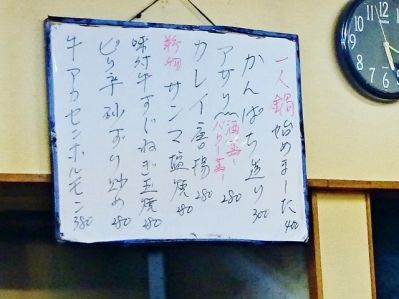 一人鍋始めました 400
かんぱち造り 300
アサリ 酒蒸し バター蒸し 280
カレイ唐揚 280
新物 サンマ塩焼 280
味付牛すじねぎ玉焼 280
ピリ辛砂ずり炒め 280
牛アカセンホルモン 380